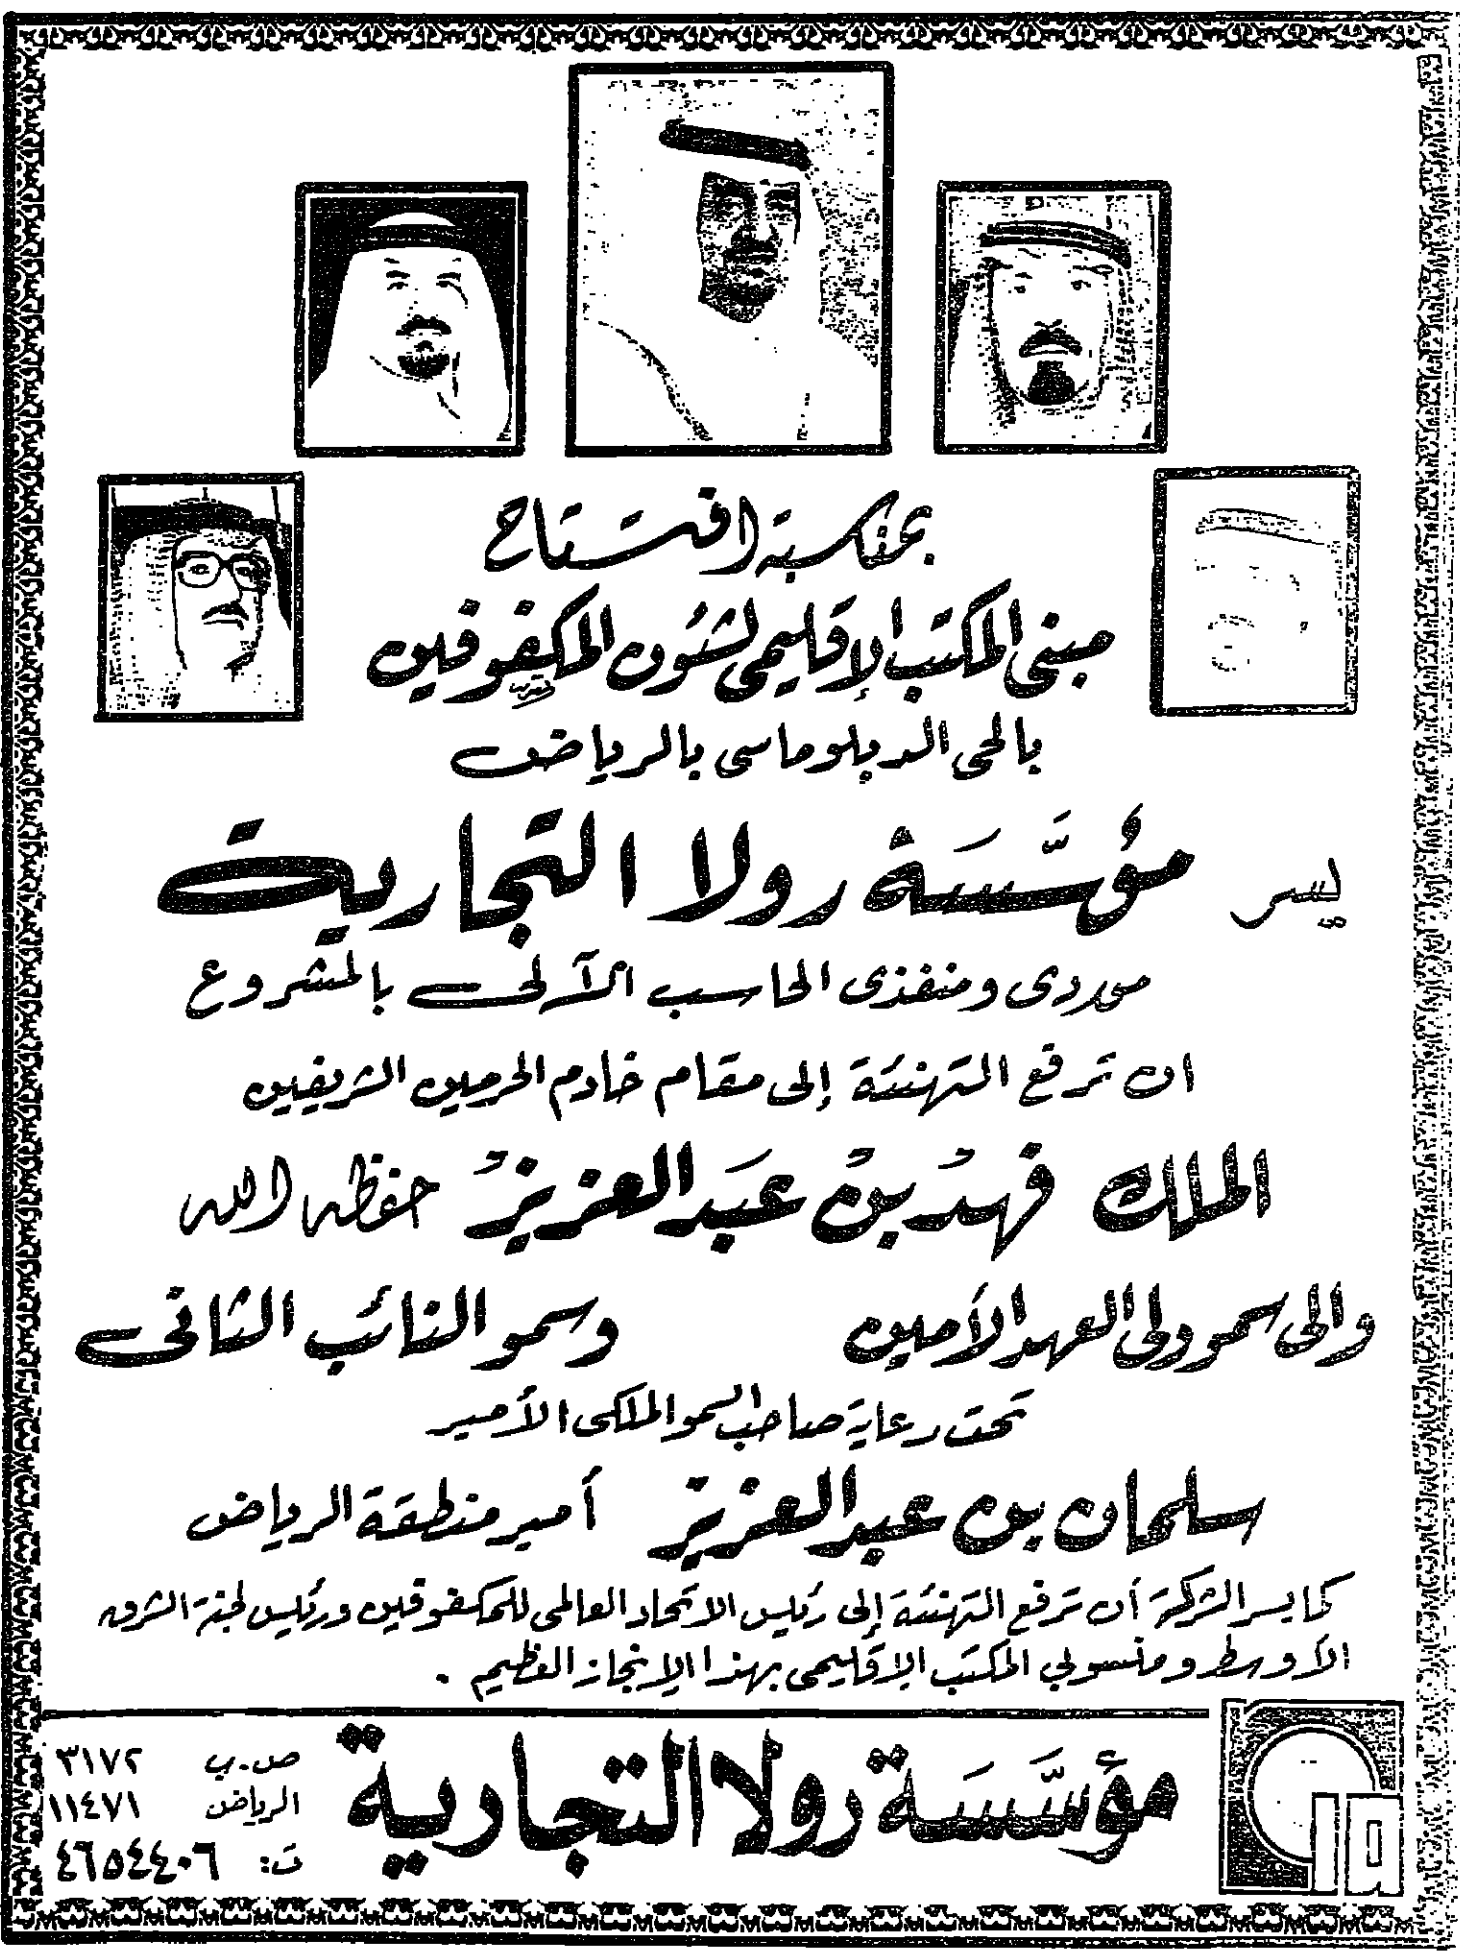 بمناسبة افتتاح
مبنى المكتب الإقليمى لشئون المكفوفين
بالحى الدبلوماسى بالرياض
يسر مؤسَّسَة رولا التجارية
موردى ومنفذى الحاسب الآلى بالمشروع
ان ترفع التهنئة إلى مقام خادم الحرمين الشريفين
الملك فهدُ بنُ عَبدالعزيزْ حفظه الله
والى سمو ولى العهد الأمين وسمو النائب الثانى
تحت رعاية صاحب السمو الملكى الأمير
سلمان بن عبدالعزيز أمير منطقة الرياض
كما يسر الشركة أن ترفع التهنئة إلى رئيس الاتحاد العالمى للمكفوفين ورئيس لجنة الشرق
الأوسط ومنسوبي المكتب الإقليمى بهذا الإنجاز العظيم .
مؤسَّسَة رولا التجارية
ص.ب ٣١٧٢
الرياض ١١٤٧١
ت: ٤٦٥٤٤٠٦